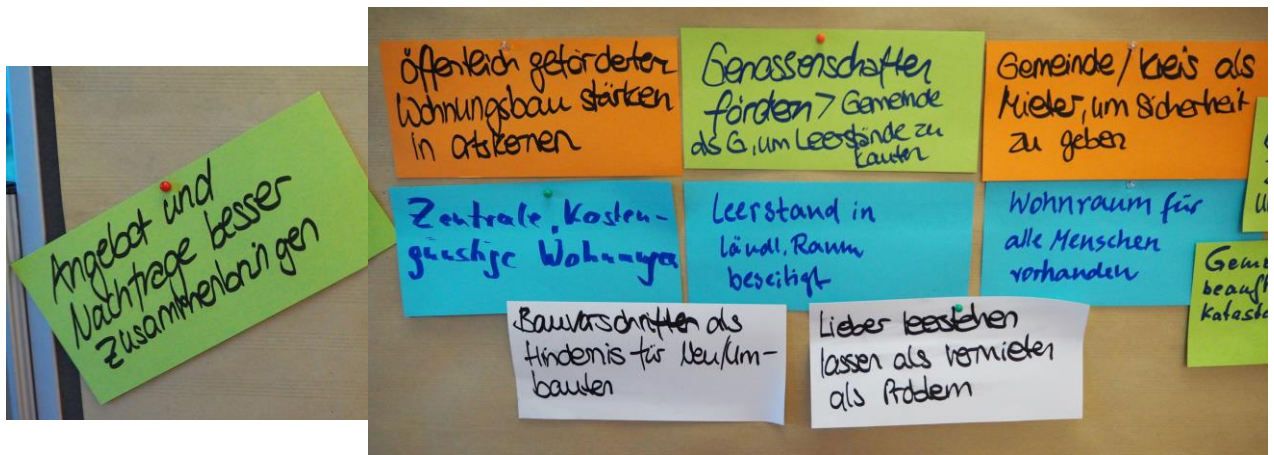 Angebot und
Nachfrage besser
zusammenbringen
öffentlich geförderten
Wohnungsbau stärken
in Ortskernen
Genossenschaften
fördern > Gemeinde
als G, um Leerstände zu
kaufen
Gemeinde/Kreis als
Mieter, um Sicherheit
zu geben
Zentrale, Kosten-
günstige Wohnungen
Leerstand in
ländl. Raum
beseitigt
Wohnraum für
alle Menschen
vorhanden
Bauvorschriften als
Hindernis für Neu/Um-
bauten
Lieber leerstehen
lassen als vermieten
als Problem